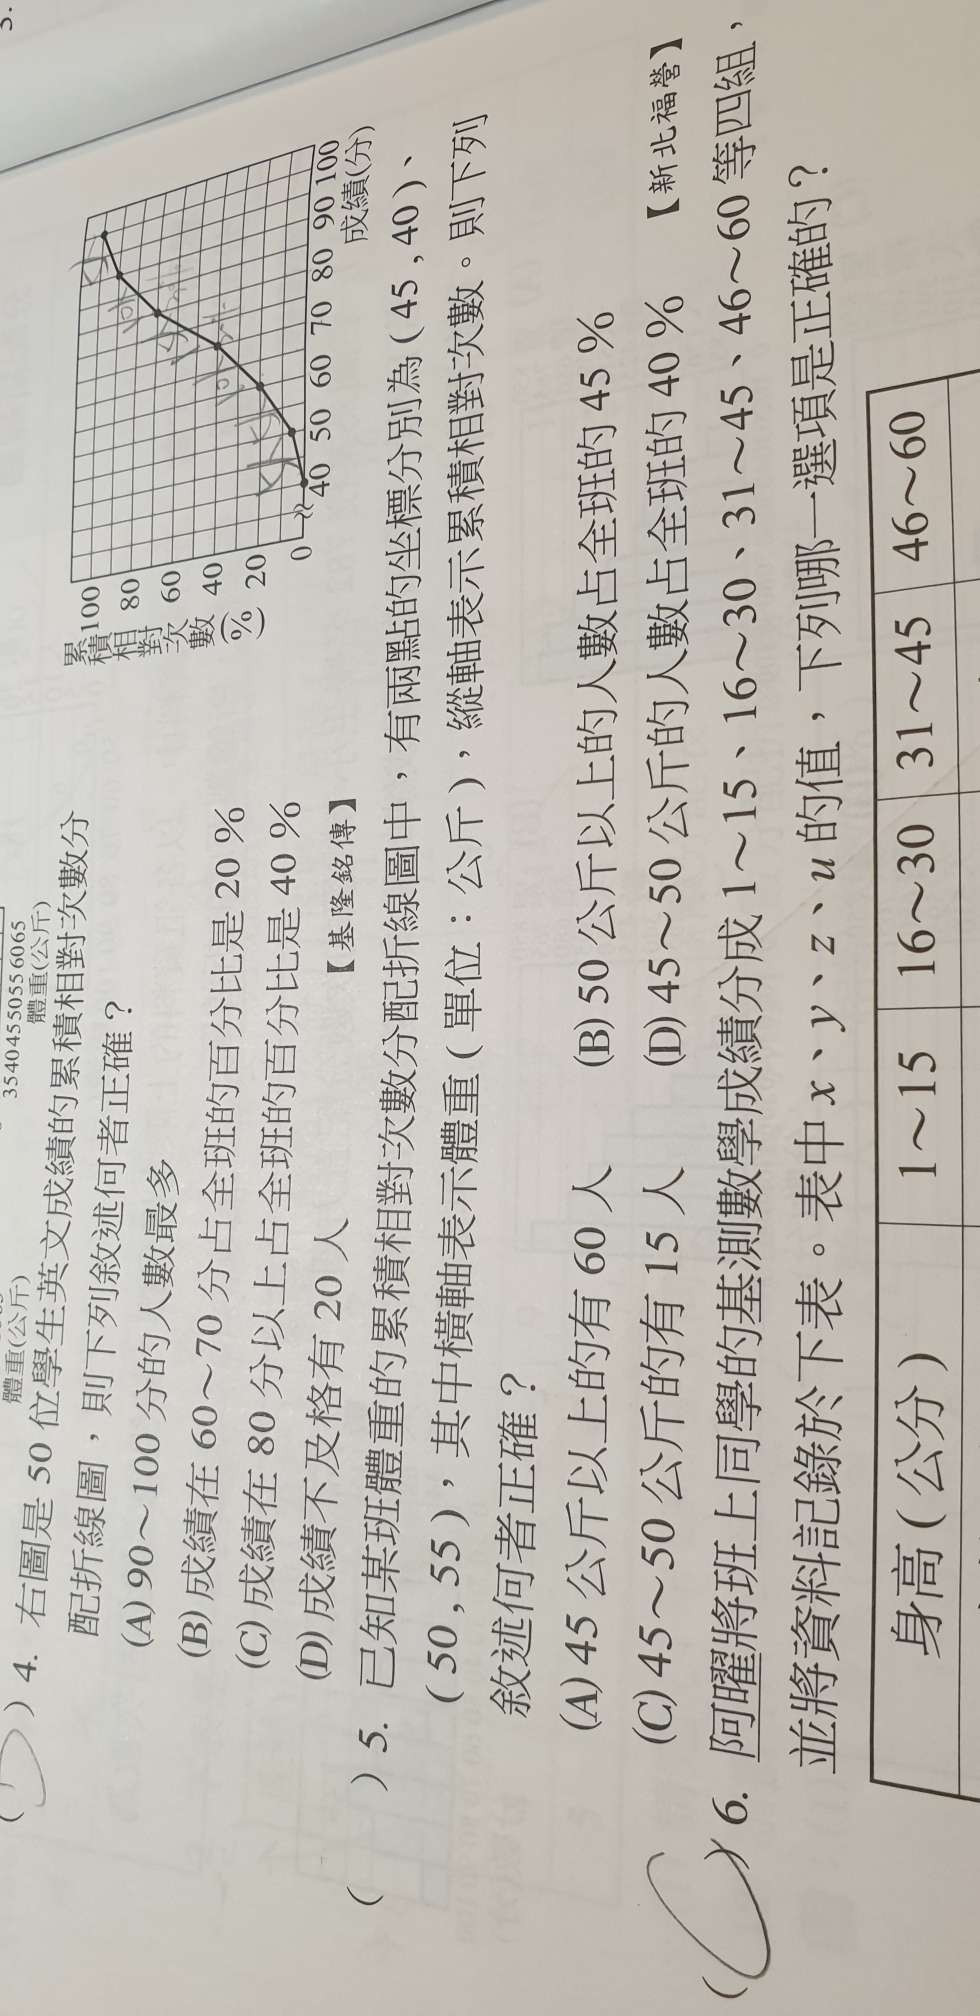 3.
35404550556065
體重(公斤)
體重(公斤)
) 4. 右圖是 50 位學生英文成績的累積相對次數分
配折線圖，則下列敘述何者正確？
(A) 90～100 分的人數最多
(B) 成績在 60～70 分占全班的百分比是 20 %
(C) 成績在 80 分以上占全班的百分比是 40 %
(D) 成績不及格有 20 人
【基隆銘傳】
累積相對次數(%)
100
80
60
40
20
0
40 50 60 70 80 90 100
成績(分)
( ) 5. 已知某班體重的累積相對次數分配折線圖中，有兩點的坐標分別為 ( 45 , 40 )、
( 50 , 55 )，其中橫軸表示體重 ( 單位：公斤 )，縱軸表示累積相對次數。則下列
敘述何者正確？
(A) 45 公斤以上的有 60 人 (B) 50 公斤以上的人數占全班的 45 %
(C) 45～50 公斤的有 15 人 (D) 45～50 公斤的人數占全班的 40 %
【新北福營】
( ) 6. 阿曜將班上同學的基測數學成績分成 1～15、16～30、31～45、46～60 等四組，
並將資料記錄於下表。表中 x、y、z、u 的值，下列哪一選項是正確的？
身高 ( 公分 ) 1～15 16～30 31～45 46～60